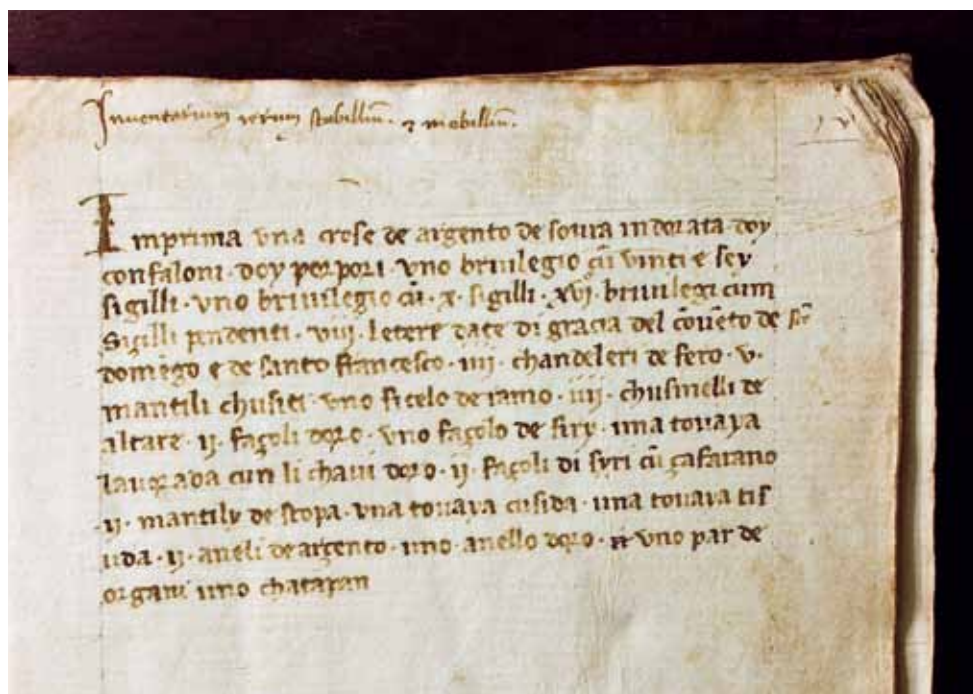 Inventarium rerum stabillium · ⁊ mobillium ·
Imprima vna crose de argento de soura indorata · doy
confaloni · doy porpori · vno briuilegio cũ vinti e sey
sigilli · vno briuilegio cũ · x · sigilli · xvi · briuilegi cum
sigilli pendenti · viii · letere date di gracia del cõuẽto de
domẽgo e de santo francesco · iiij · chandeleri de fero · v ·
mantili chusiti vno sicelo de ramo · iiij · chusinelli de
altare · ij · façoli doro · vno façolo de siry · una touaya
lauorada cun li chaui doro · ij · façoli di syri cũ çafarano
· ij · mantily de stopa · vna touaya cusida · una touaya tis
uda · ij · aneli de argento · uno · anello doro · vno par de
organi uno chatapan